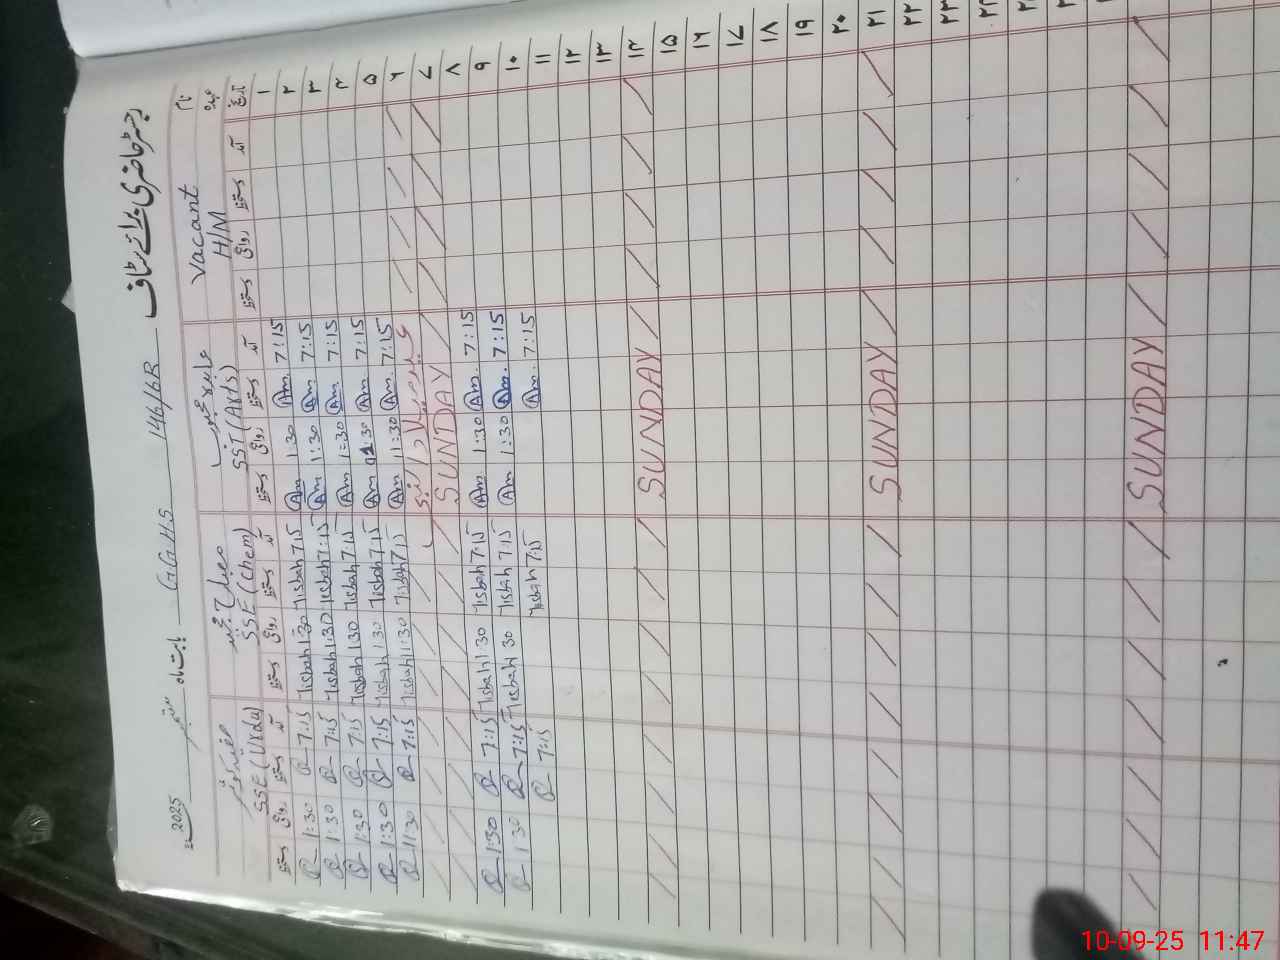 رجسٹر حاضری برائے سٹاف GGHS 146/6R بابت ماہ ستمبر 2025ء
نام Vacant
عہدہ H/M SST (Arts) SSE (Chem) SSE (Urdu)
تاریخ آمد دستخط روانگی دستخط آمد دستخط روانگی دستخط آمد دستخط روانگی دستخط آمد دستخط روانگی دستخط
۱ 7:15 Am 1:30 Am 7:15 Misbah 1:30 Misbah 7:15 1:30
۲ 7:15 Am 1:30 Am 7:15 Misbah 1:30 Misbah 7:15 1:30
۳ 7:15 Am 1:30 Am 7:15 Misbah 1:30 Misbah 7:15 1:30
۴ 7:15 Am 1:30 Am 7:15 Misbah 1:30 Misbah 7:15 1:30
۵ 7:15 Am 11:30 Am 7:15 Misbah 11:30 Misbah 7:15 11:30
۶
۷ SUNDAY
۸ 7:15 Am 1:30 Am 7:15 Misbah 1:30 Misbah 7:15 1:30
۹ 7:15 Am 1:30 Am 7:15 Misbah 1:30 Misbah 7:15 1:30
۱۰ 7:15 Am 7:15 Misbah 7:15
۱۱
۱۲
۱۳
۱۴ SUNDAY
۱۵
۱۶
۱۷
۱۸
۱۹
۲۰
۲۱ SUNDAY
۲۲
۲۳
SUNDAY
10-09-25 11:47